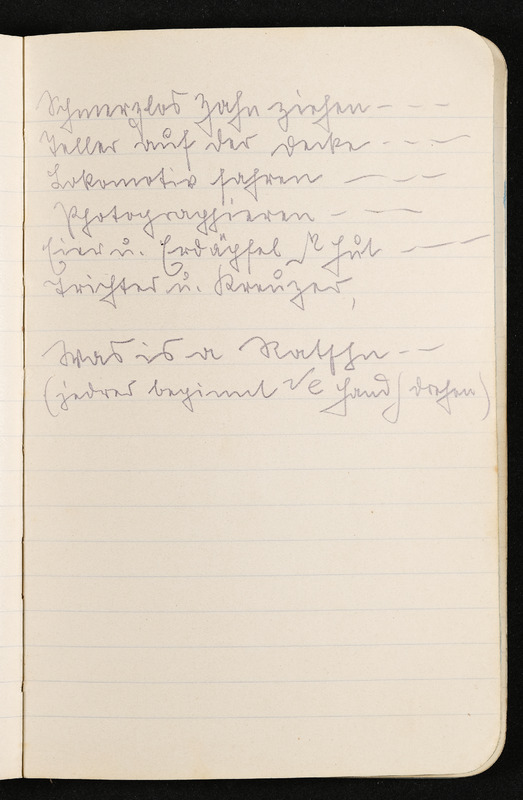 Schmerzlos Zahn ziehen – – –
Teller auf der Decke – – –
Lokomotiv fahren – – –
Photographieren – – –
Eier u. Erdäpfel Hut – –
Trichter u. Kreuzer,
Was is a Ratschn – –
(jedrer beginnt Hand drehen)